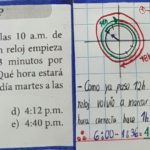 las 10 a.m. de
n reloj empieza
3 minutos por
Qué hora estará
día martes a las
d) 4:12 p.m.
e) 4:40 p.m.
- Como ya paso 12h
reloj volvió a marcar
hora correcta hace 1h
∴ 6:00 - 1h36 = 4